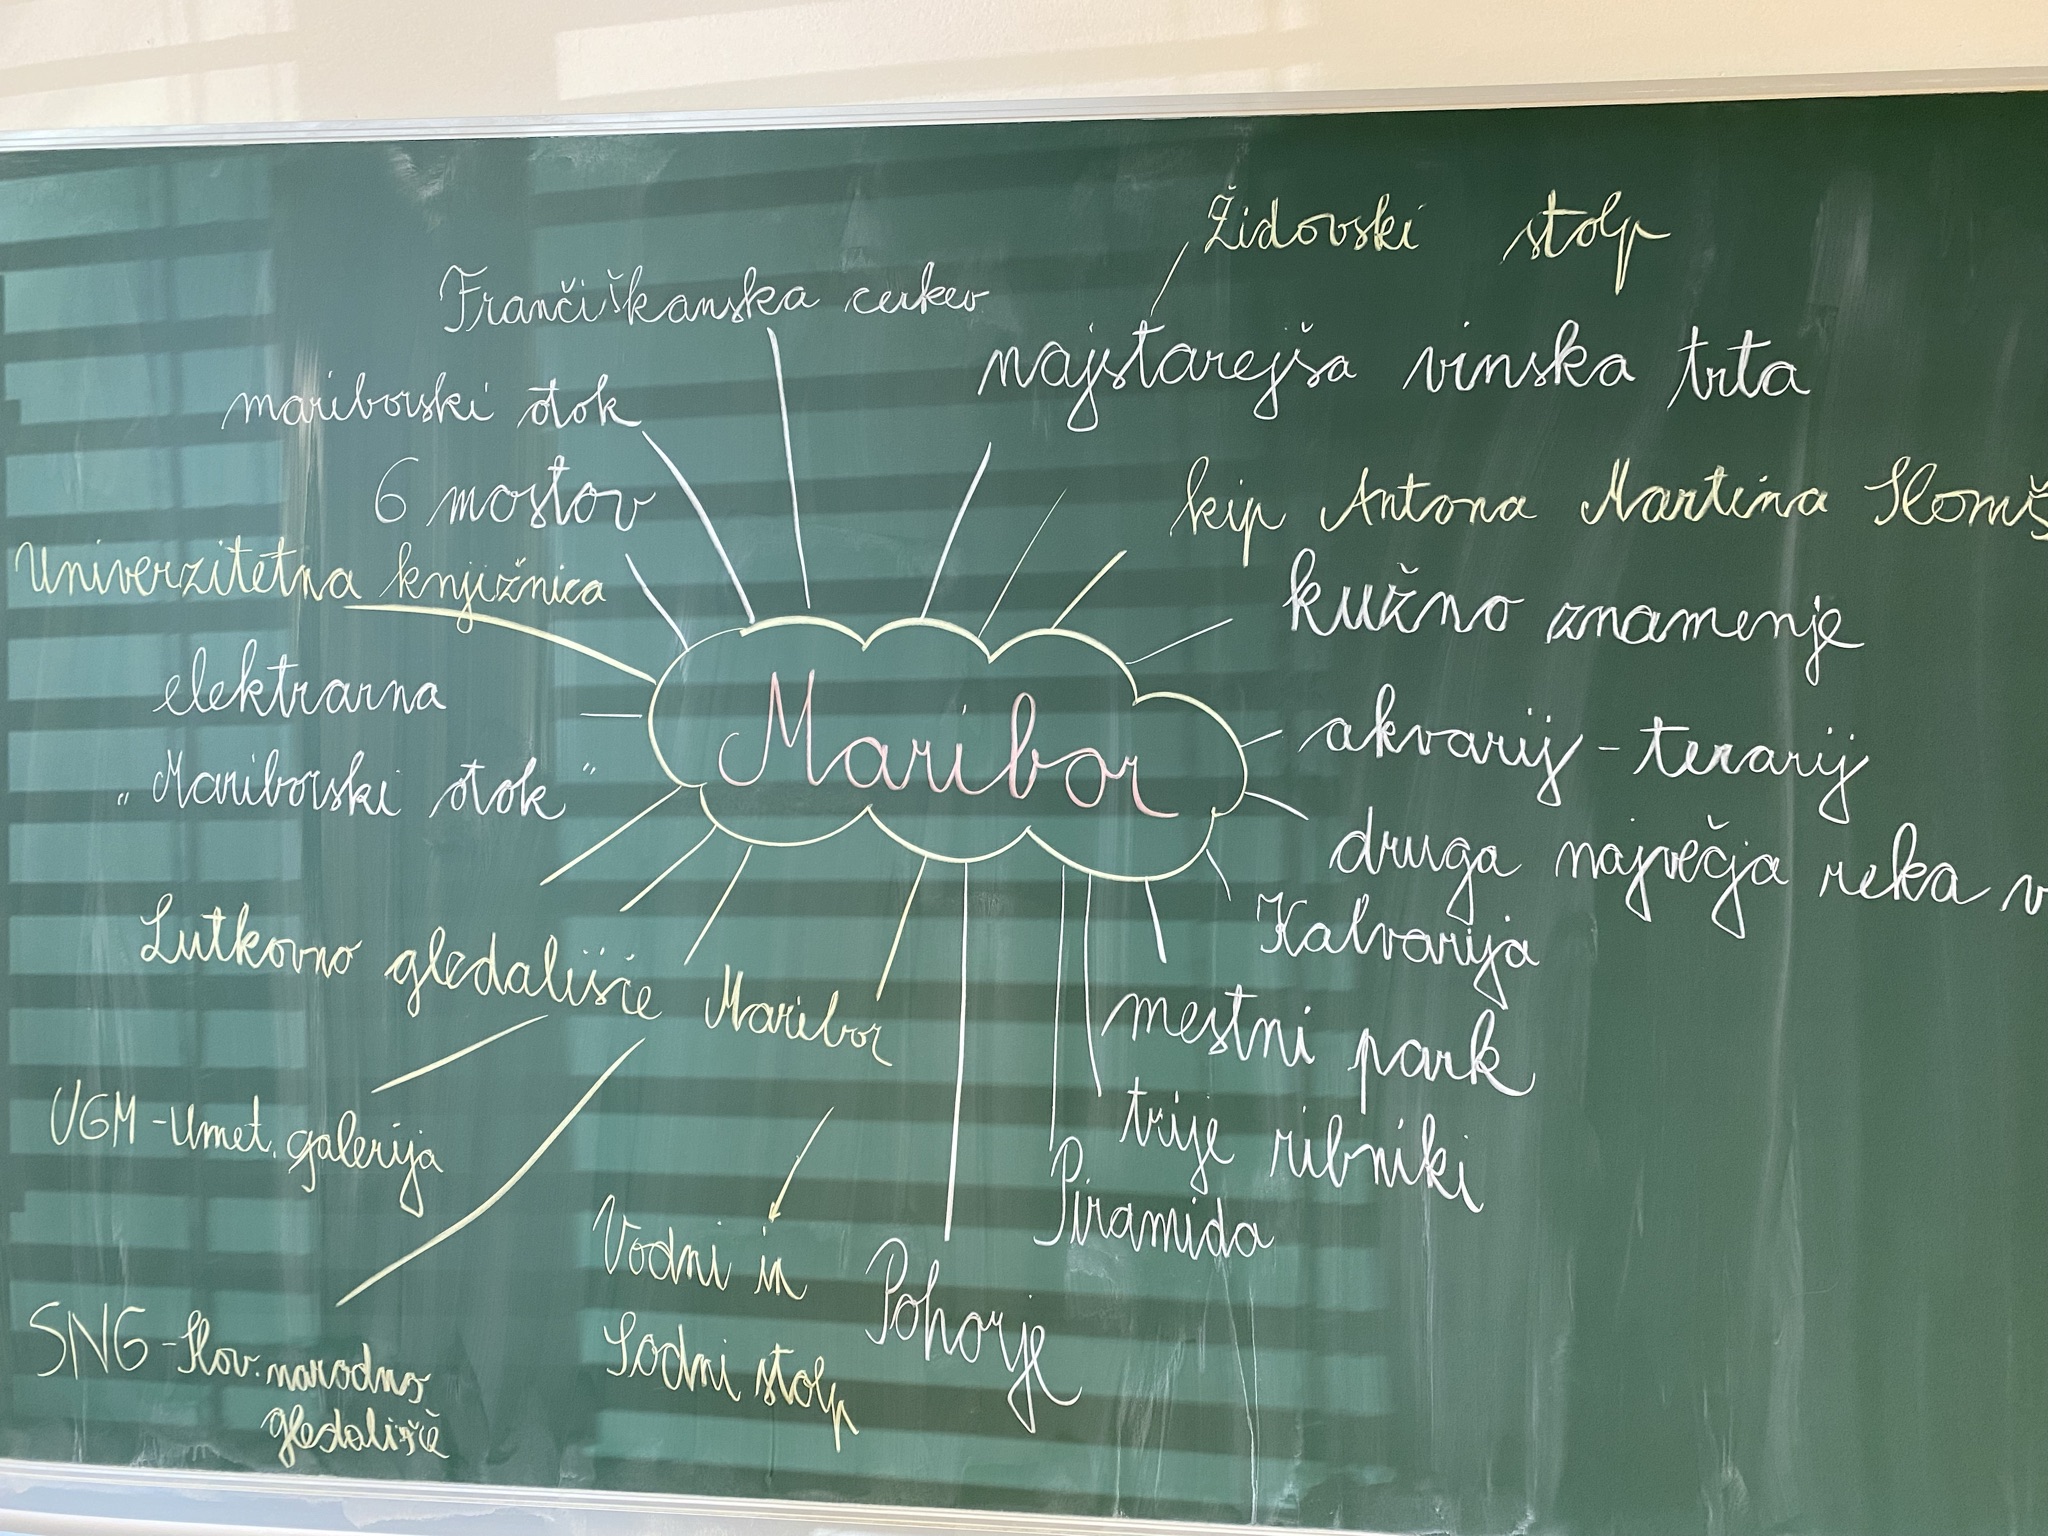 Židovski stolp
Frančiškanska cerkev
najstarejša vinska trta
mariborski otok
6 mostov
kip Antona Martina Slomš
Univerzitetna knjižnica
kužno znamenje
elektrarna
„Mariborski otok"
Maribor
akvarij - terarij
druga največja reka v
Kalvarija
Lutkovno gledališče Maribor
mestni park
UGM - Umet. galerija
trije ribniki
Piramida
Vodni in
Sodni stolp
Pohorje
SNG - Slov. narodno
gledališče